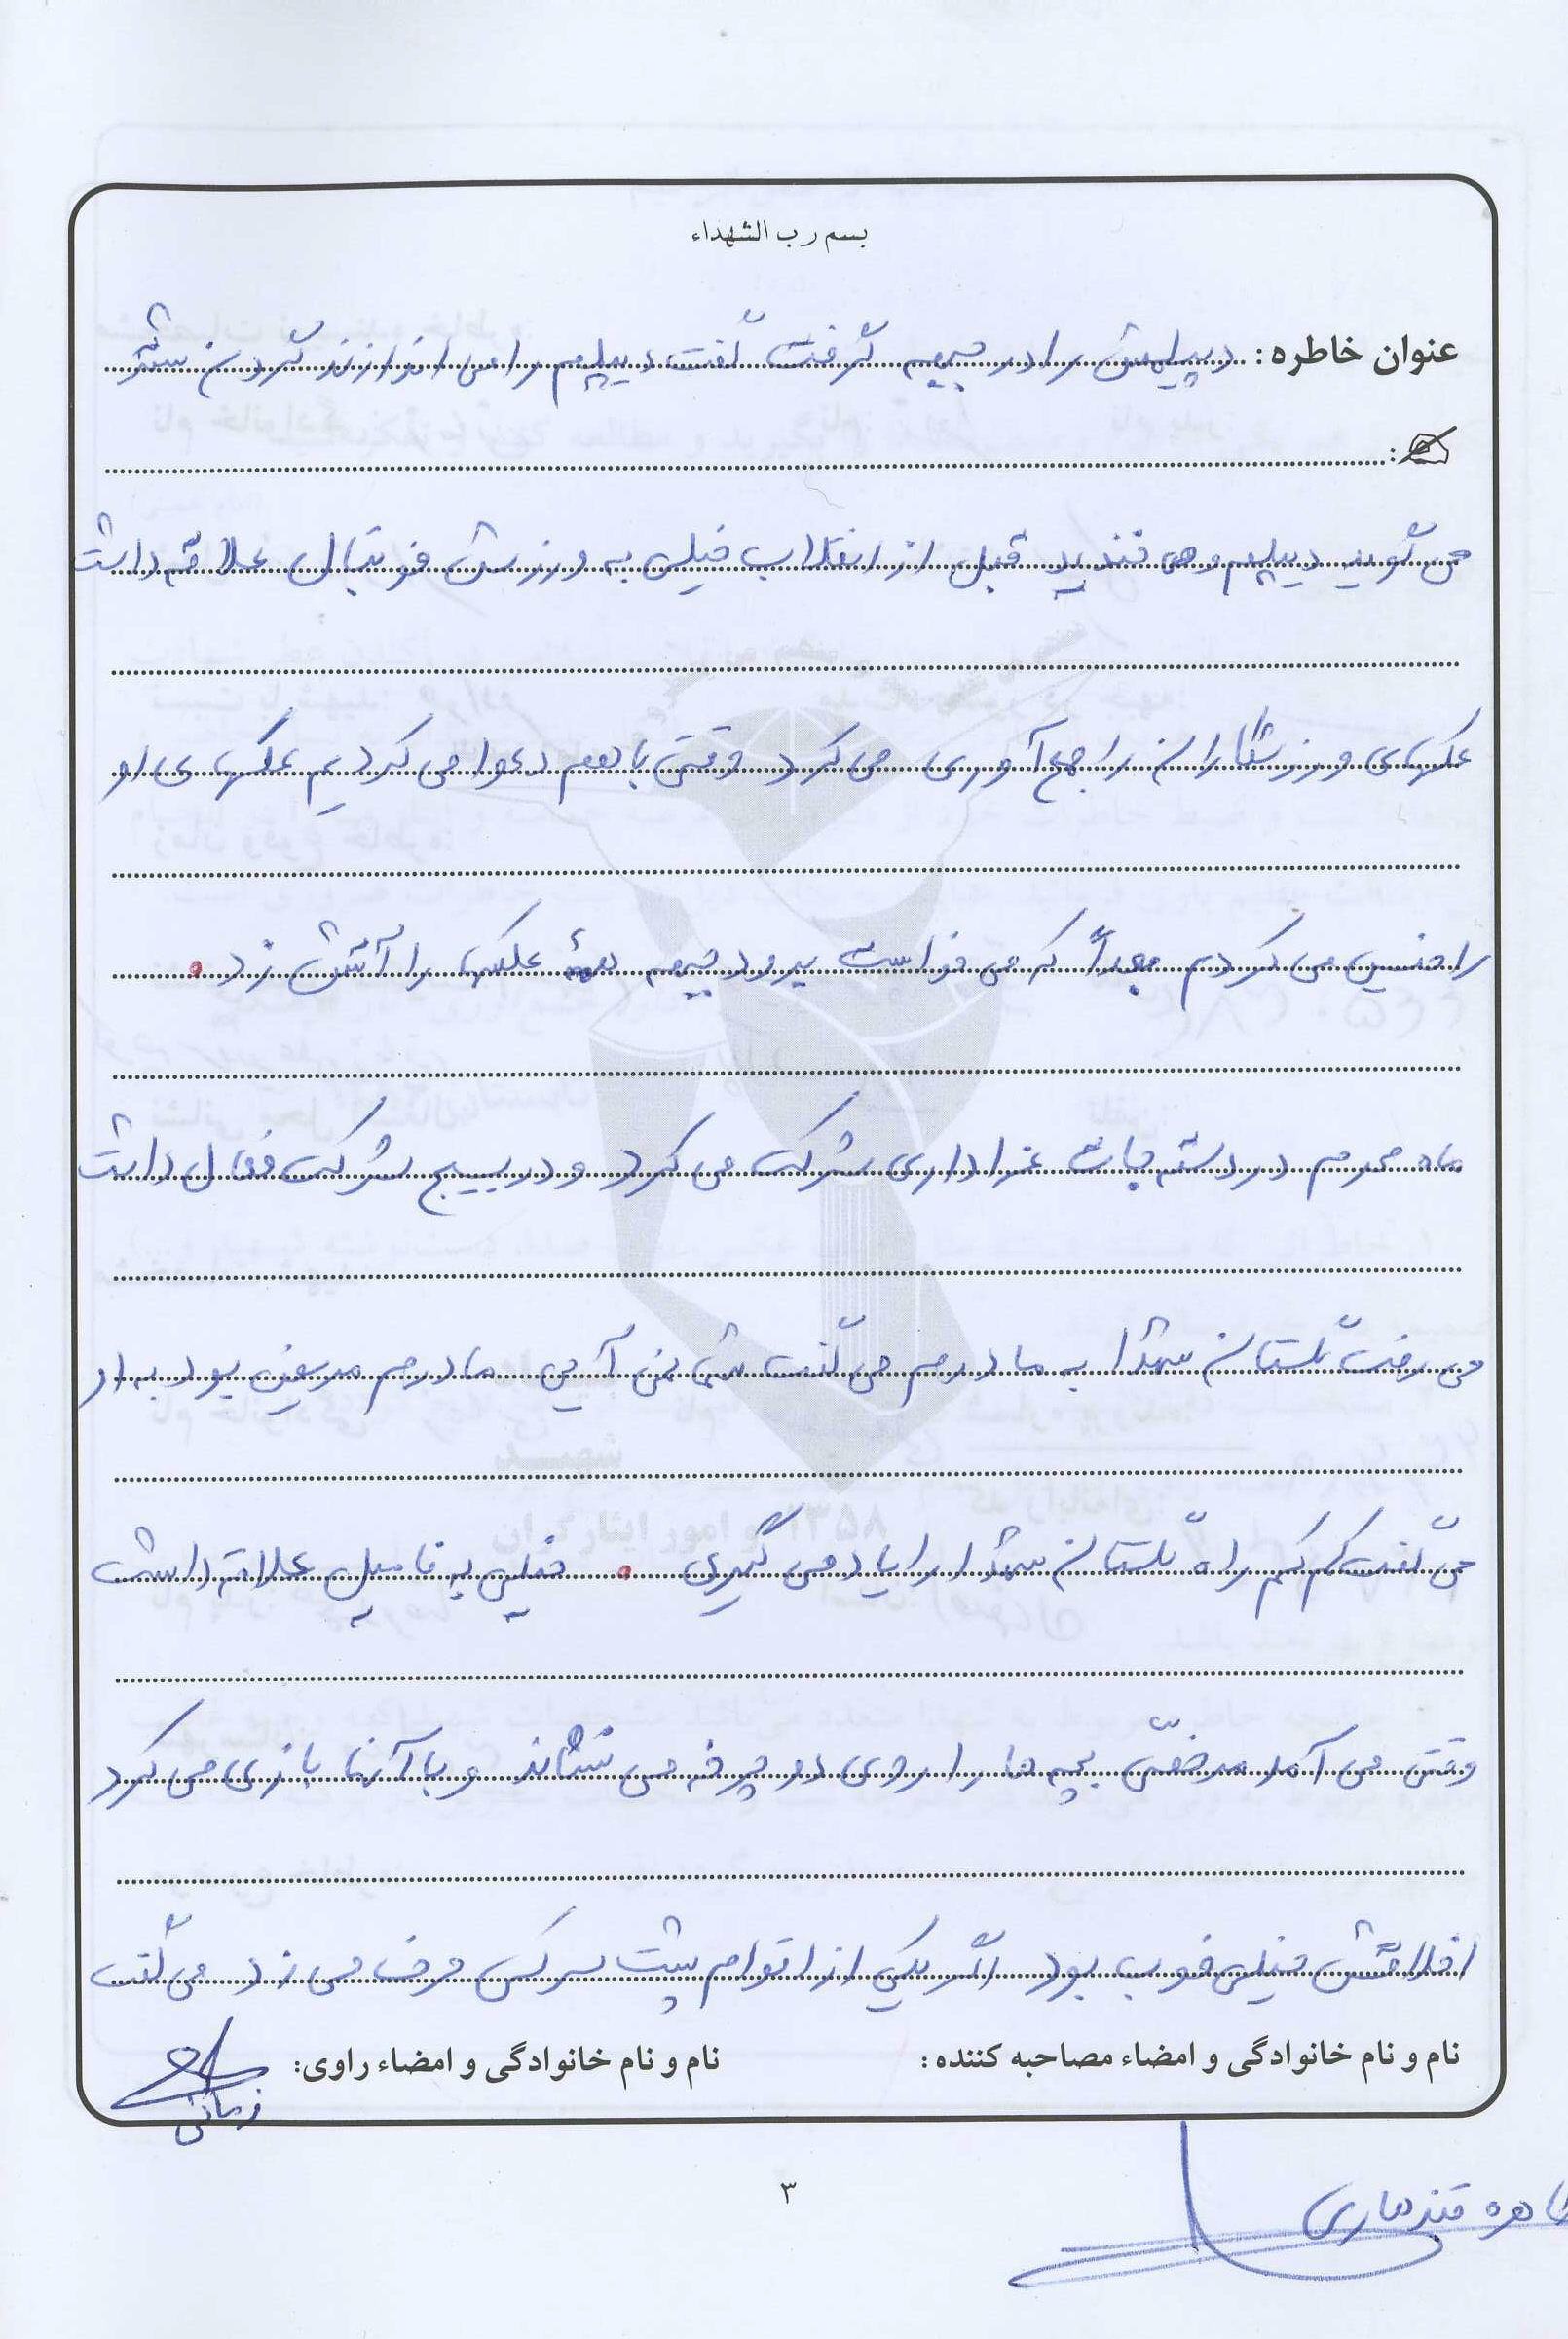 بسم رب الشهداء
عنوان خاطره: دیپلمش را در جبهه گرفت گفت دیپلم را می اندازند گردن شتر
می گوید دیپلم و می خندید قبل از انقلاب خیلی به ورزش فوتبال علاقه داشت
عکهای ورزشکاران را جمع آوری می کرد وقتی با هم دعوا می کردیم عکهای او
را می کردم بعداً که می خواست برود جبهه همۀ عکسها را آتش زد.
ماه محرم در دسته جات عزاداری شرکت می کرد و در بسیج شرکت فعال داشت
می رفت گلستان شهدا به مادرم می گفت شما نمی آیی مادرم مریض بود به او
می گفت کم کم راه گلستان شهدا را یاد می گیری . خیلی به فامیل علاقه داشت
وقتی می آمد مرخصی بچه ها را روی دوچرخه می نشاند و با آنها بازی می کرد
اخلاقش خیلی خوب بود اگر یکی از اقوام پشت سر کسی حرف می زد می گفت
نام و نام خانوادگی و امضاء مصاحبه کننده: نام و نام خانوادگی و امضاء راوی:
زمانی
۳
طاهره قندهاری